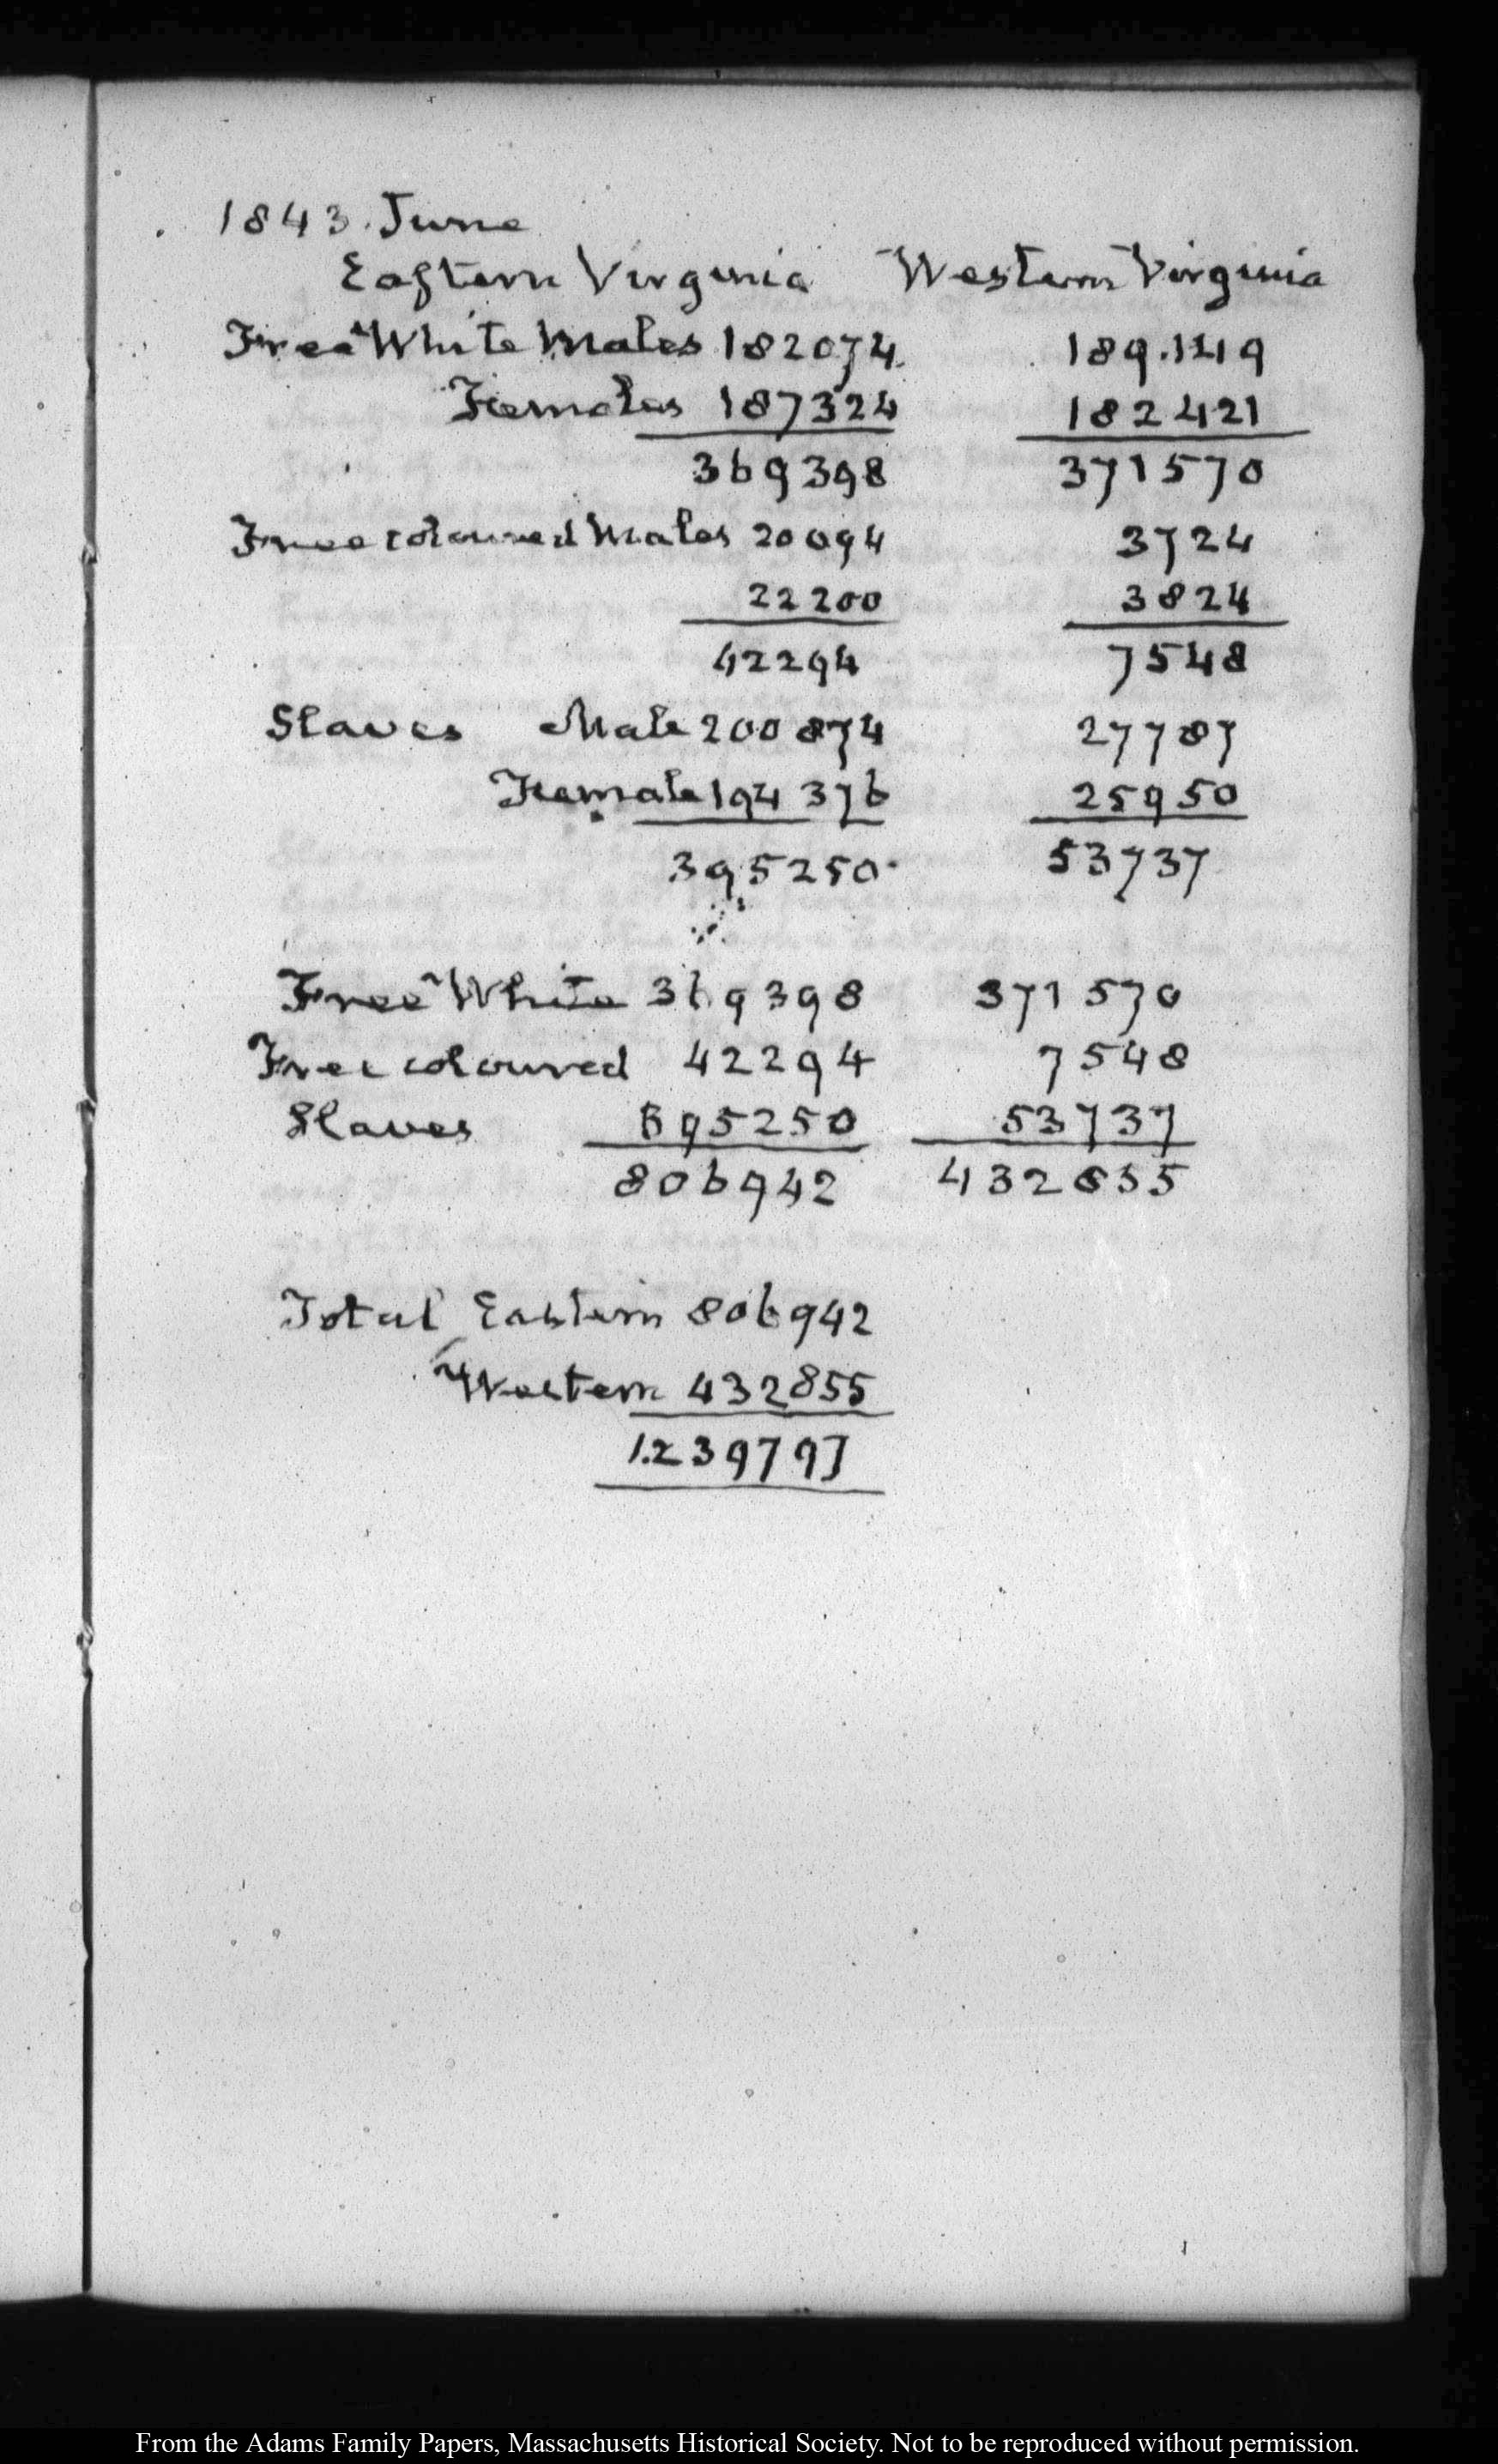 1843. June
Eastern Virginia Western Virginia
Free White Males 182074 189.149
Females 187324 182421
369398 371570
Free coloured Males 20094 3724
22200 3824
42294 7548
Slaves Male 200874 27787
Female 194376 25950
395250 53737
Free White 369398 371570
Free coloured 42294 7548
Slaves 395250 53737
806942 432855
Total Eastern 806942
Western 432855
1.239797
From the Adams Family Papers, Massachusetts Historical Society. Not to be reproduced without permission.